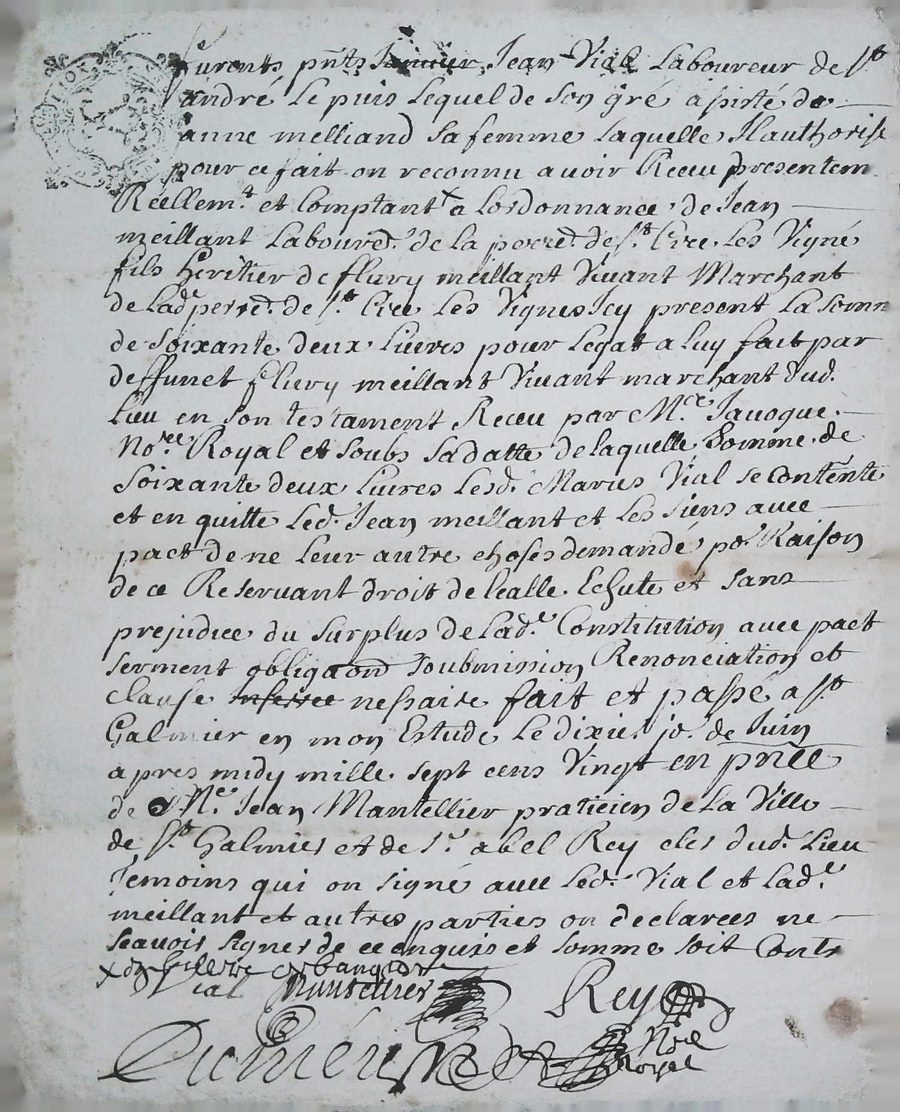 furents pñts Jean Vial Laboureur de St
andré Le puis Lequel de son gré assisté de
anne melliand sa femme Laquelle Il authorise
pour ce fait on reconnu avoir Receu presentem
Reellemt et Comptant x a Lordonnance de Jean
meillant Labourd. de la perred. de St. Cire Les Vigne
fils heritier de flury meillant Vivant Marchant
de Lade perred. de St. Cire Les Vignes Icy present La Somm
de Soixante deux Livres pour Legat a luy fait par
deffunct flury meillant Vivant marchant dud.
Lieu en son testament Receu par Mre Javogue
Nore Royal et soubs sa datte de laquelle Somme de
Soixante deux Livres Lesd. Maries Vial se contente
et en quitte Led. Jean meillant et les siens avec
pact de ne leur autre choses demandé po. Raison
de ce Reservant droit de Lealle Echute et sans
prejudice du surplus de Lade Constitution avec pact
serment obligaon soubmission Renonciation et
clause nessaire fait et passé a St
Galmier en mon Estude Le dixie. jo. de Juin
apres midy mille sept cens Vingt en pñce
de Me Jean Mantellier praticien de la Ville
de St. Galmier et de Sr. abel Rey clerc dud. Lieu
Temoins qui on signé avec Led. Vial et Lade
meillant et autres parties on declarees ne
scavoir signer de ce enquis et somme soit Contr
Vial Mantellier Rey
Nore
Royal